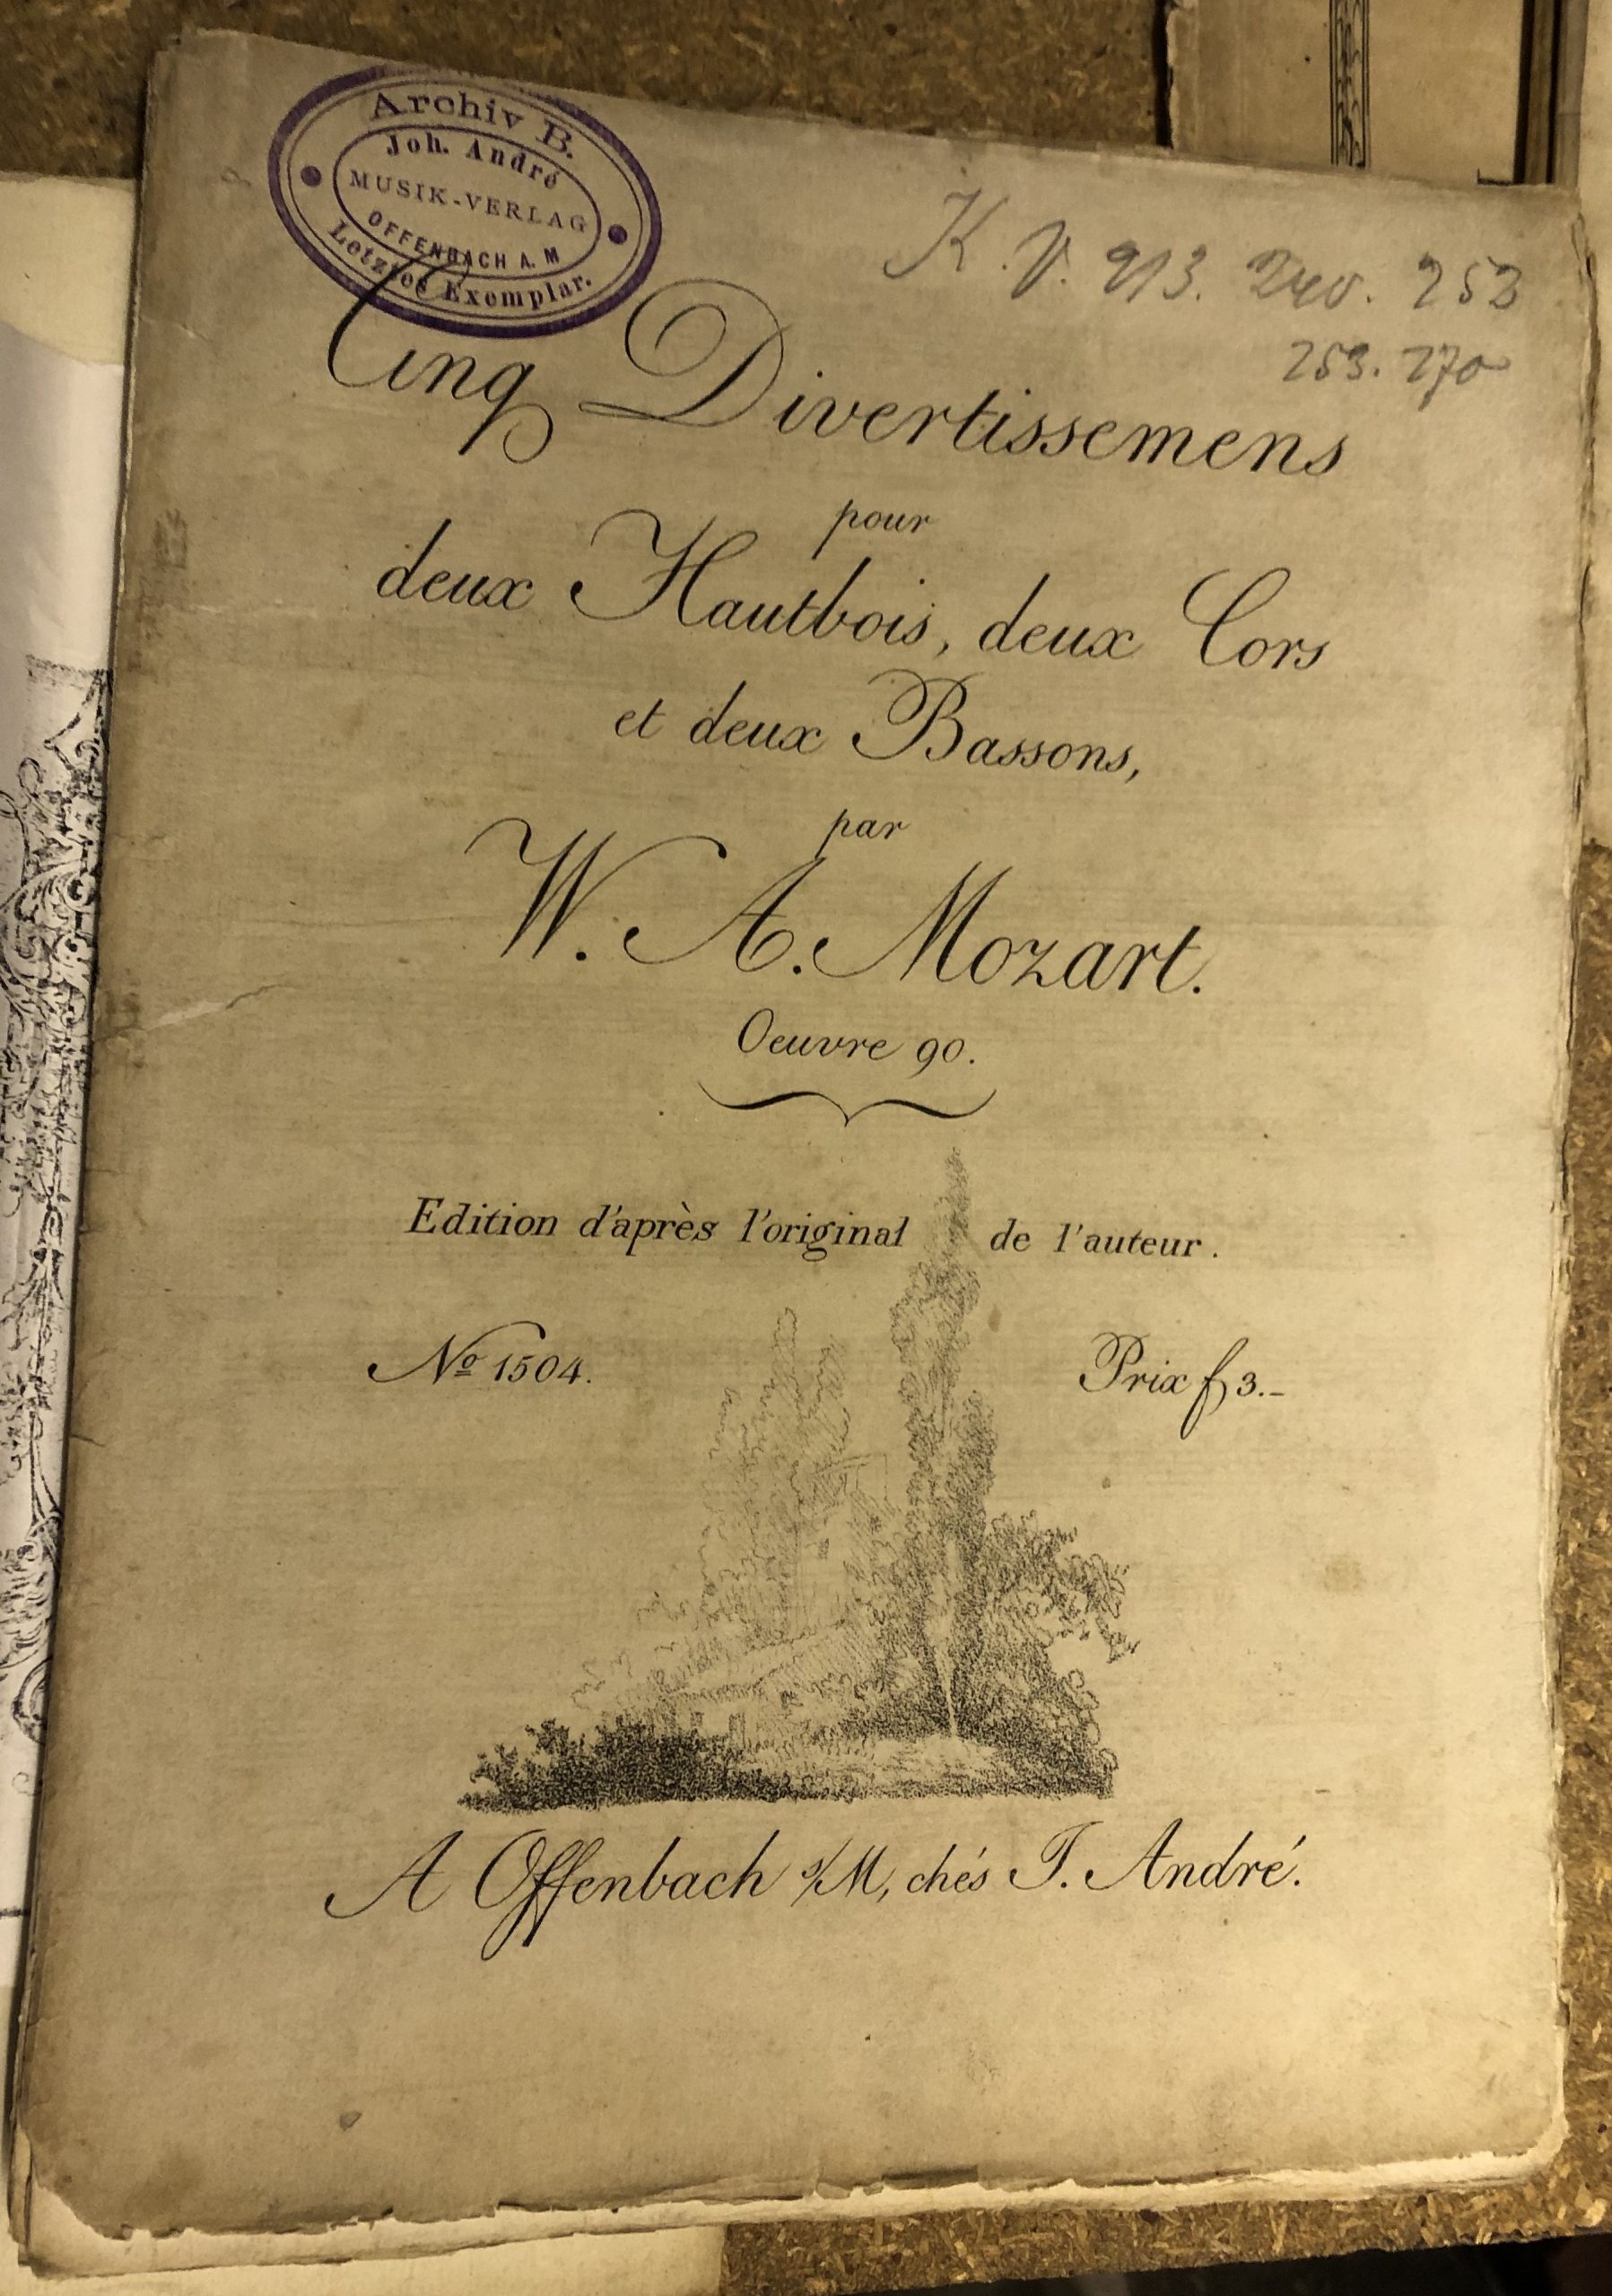 Archiv B.
Joh. André
MUSIK-VERLAG
OFFENBACH A. M
Letztes Exemplar.
K. V. 213. 252
253. 270
Cinq Divertissemens
pour
deux Hautbois, deux Cors
et deux Bassons,
par
W. A. Mozart.
Oeuvre 90.
Edition d'après l'original de l'auteur.
No 1504.
Prix f 3.-
A Offenbach s/M, chés J. André.